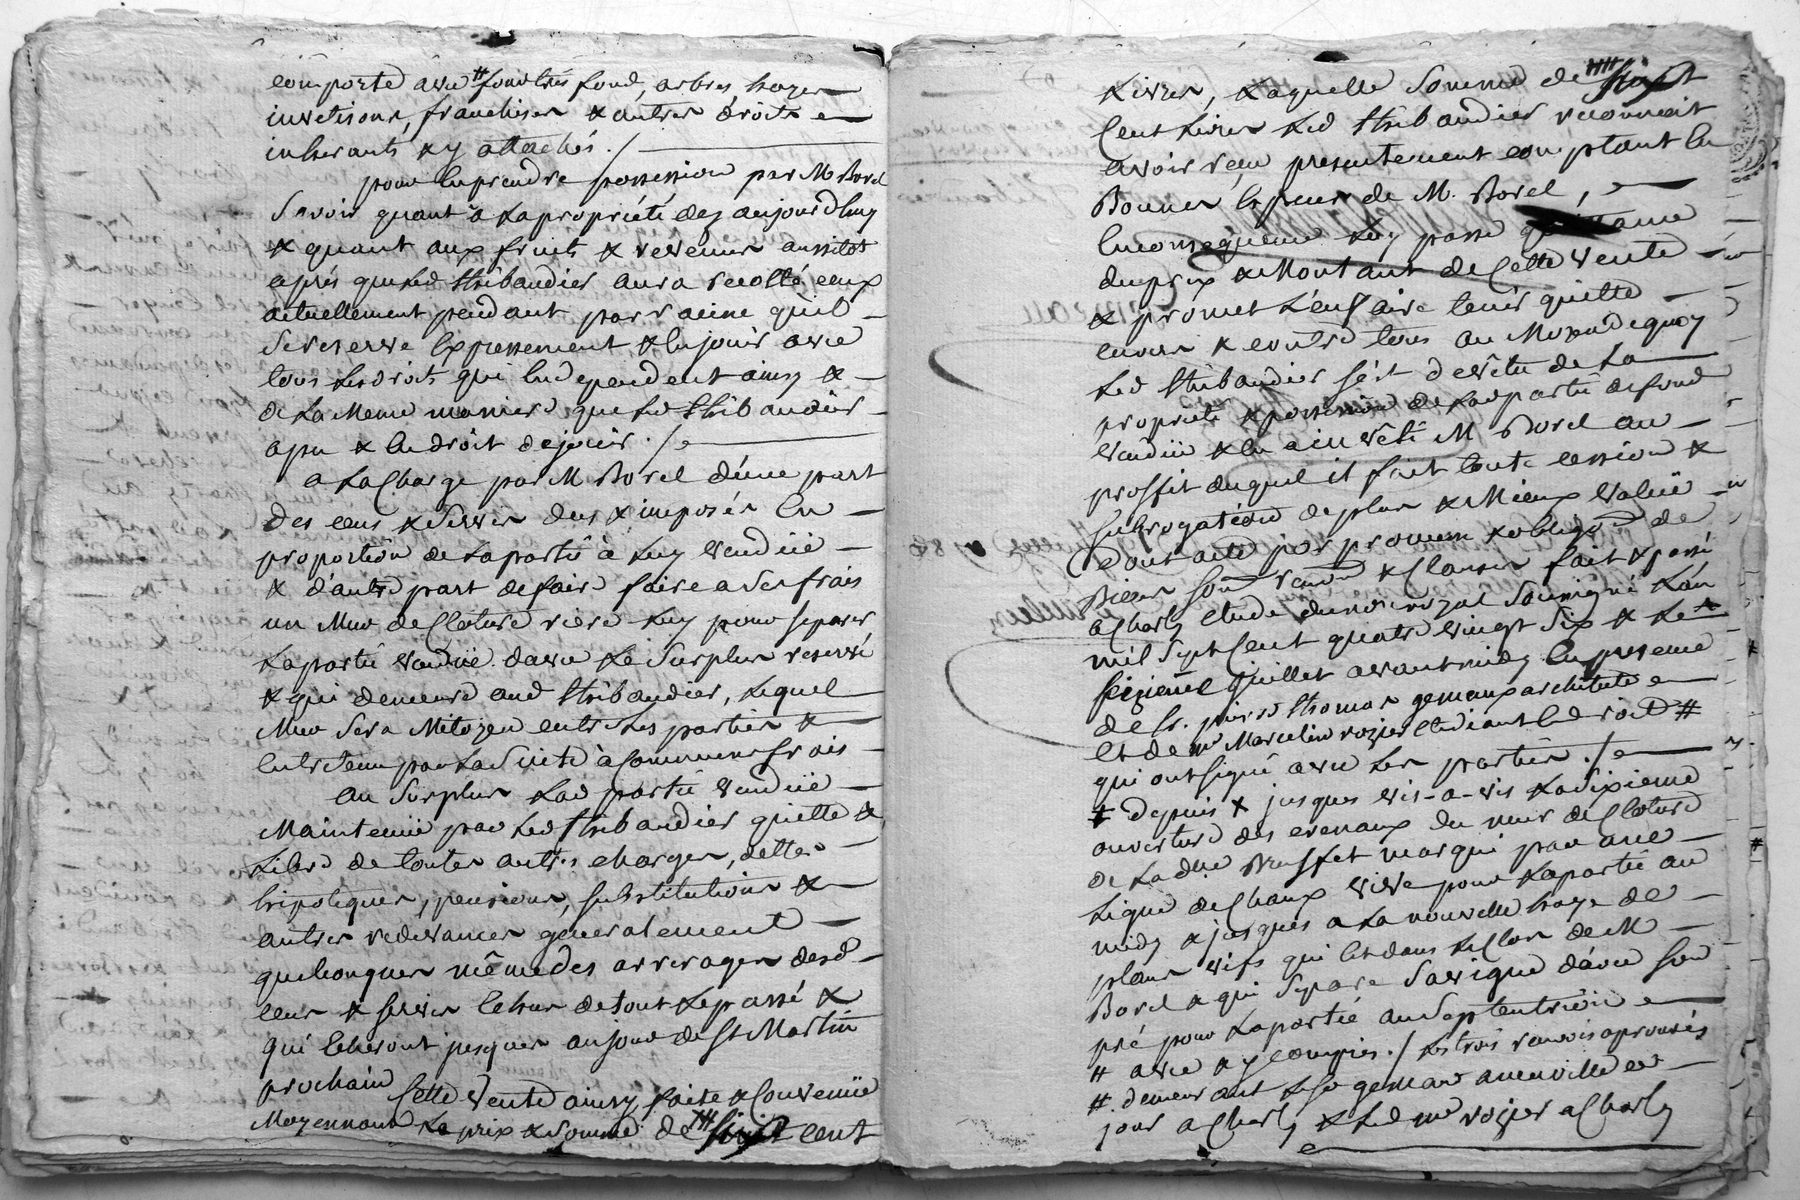 comporte avec # fond tres fond, arbres hayes
investisons, franchises & autres droits
inherants & y attachés ./
pour en prendre possession par M Borel
Savoir quant à la propriété dez aujourd'huy
& quant aux fruits & revenus aussitot
après que led thibaudier aura recolté ceux
actuellement pendant par racine qu'il
se reserve Expressement & en jouir avec
tous les droits qui En dependent ainsy &
de la meme maniere que led thibaudier
a pu & en droit de jouir ./
a la Charge par M Borel d'une part
des cens & Servis dus & imposés En
proportion de la partie à luy venduë
& d'autre part de faire faire a ses frais
un Mur de Cloture riere luy pour separer
la partie venduë d'avec le Surplus reservé
& qui demeure aud thibaudier, lequel
Mur sera Mitoyen entre les parties &
Entretenu par la Suite à Communs frais
au Surplus lad partie venduë
Maintenuë par led thibaudier quitte &
Libre de toutes autres charges, dettes
hipoteques, pensions, substitutions &
autres redevances generalement
quelconques même des arrerages desd
cens & servis Echus de tout le passé &
qui Echeront jusques au jour de St Martin
prochain
Cette Vente ainsy faite & Convenuë
Moyennant le prix & Somme de cent
Livres, Laquelle Somme de
Cent Livres led thibaudier reconnoit
avoir reçu presentement comptant En
Bonnes Especes de M. Borel,
En consequence luy passe quittance
du prix & Montant de Cette Vente
& promet L'en faire tenir quitte
envers & contre tous au Moyen de quoy
Led thibaudier s'est devêtu de La
propriété & possession de lad partie de fond
venduë & en a investi M Borel au
proffit duquel il fait toute cession &
subrogation de plus & Mieux Valuë
Dont acte par promesse & obligon de
Biens Soumon renon & Clauses fait & passé
a Charly etude du nore royal Soussigné L'an
mil Sept Cent quatre vingt Six & Le
Seizieme juillet avant midy En presence
de Sr. pierre thomas gemaux architecte
et de mr Marcelin rozier Etudiant En droit #
qui ont signé avec Les parties ./
# depuis & jusques vis-a-vis La Sixieme
ouverture des crenaux du mur de Cloture
de La dlle Buffet marqué par une
Ligne de Chaux vive pour La partie au
midy & jusques a La nouvelle haye de
plans vifs qui Est dans Le Clos de M
Borel & qui Separe Sa vigne d'avec son
pré pour La partie au Septentrion
# avec & y compris ./ Les trois renvois aprouvés
# demeurant Le Sr gemaux a neuville ce
jour a Charly & Led mr rozier a Charly